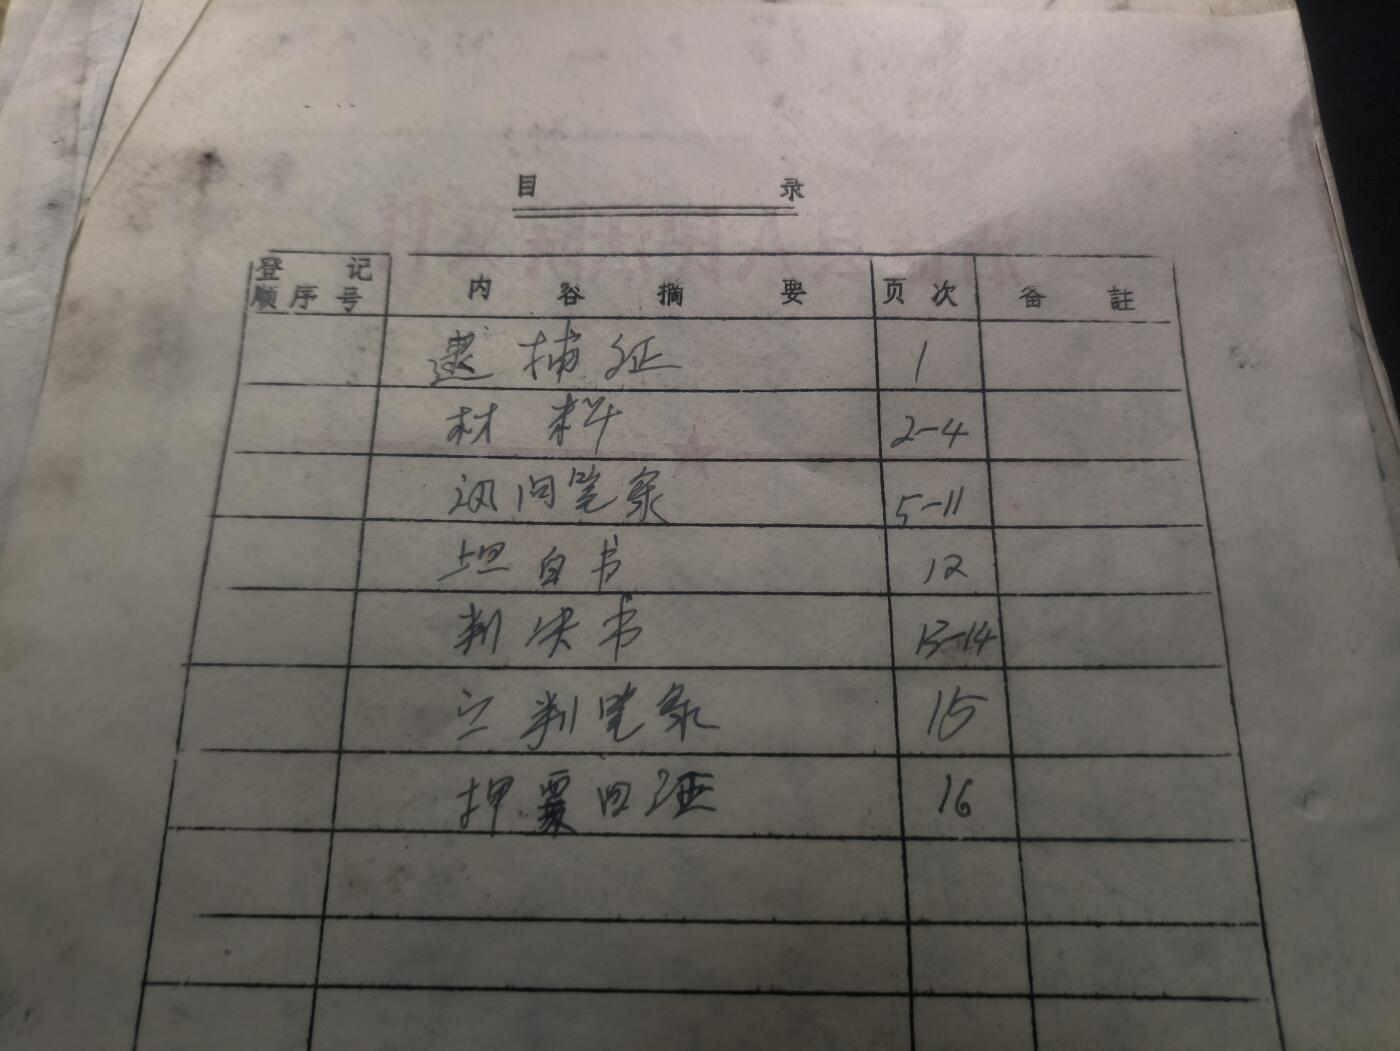 目 录
登记顺序号 内容摘要 页次 备註
逮捕证 1
材料 2-4
讯问笔录 5-11
坦白书 12
判决书 13-14
宣判笔录 15
押票回证 16